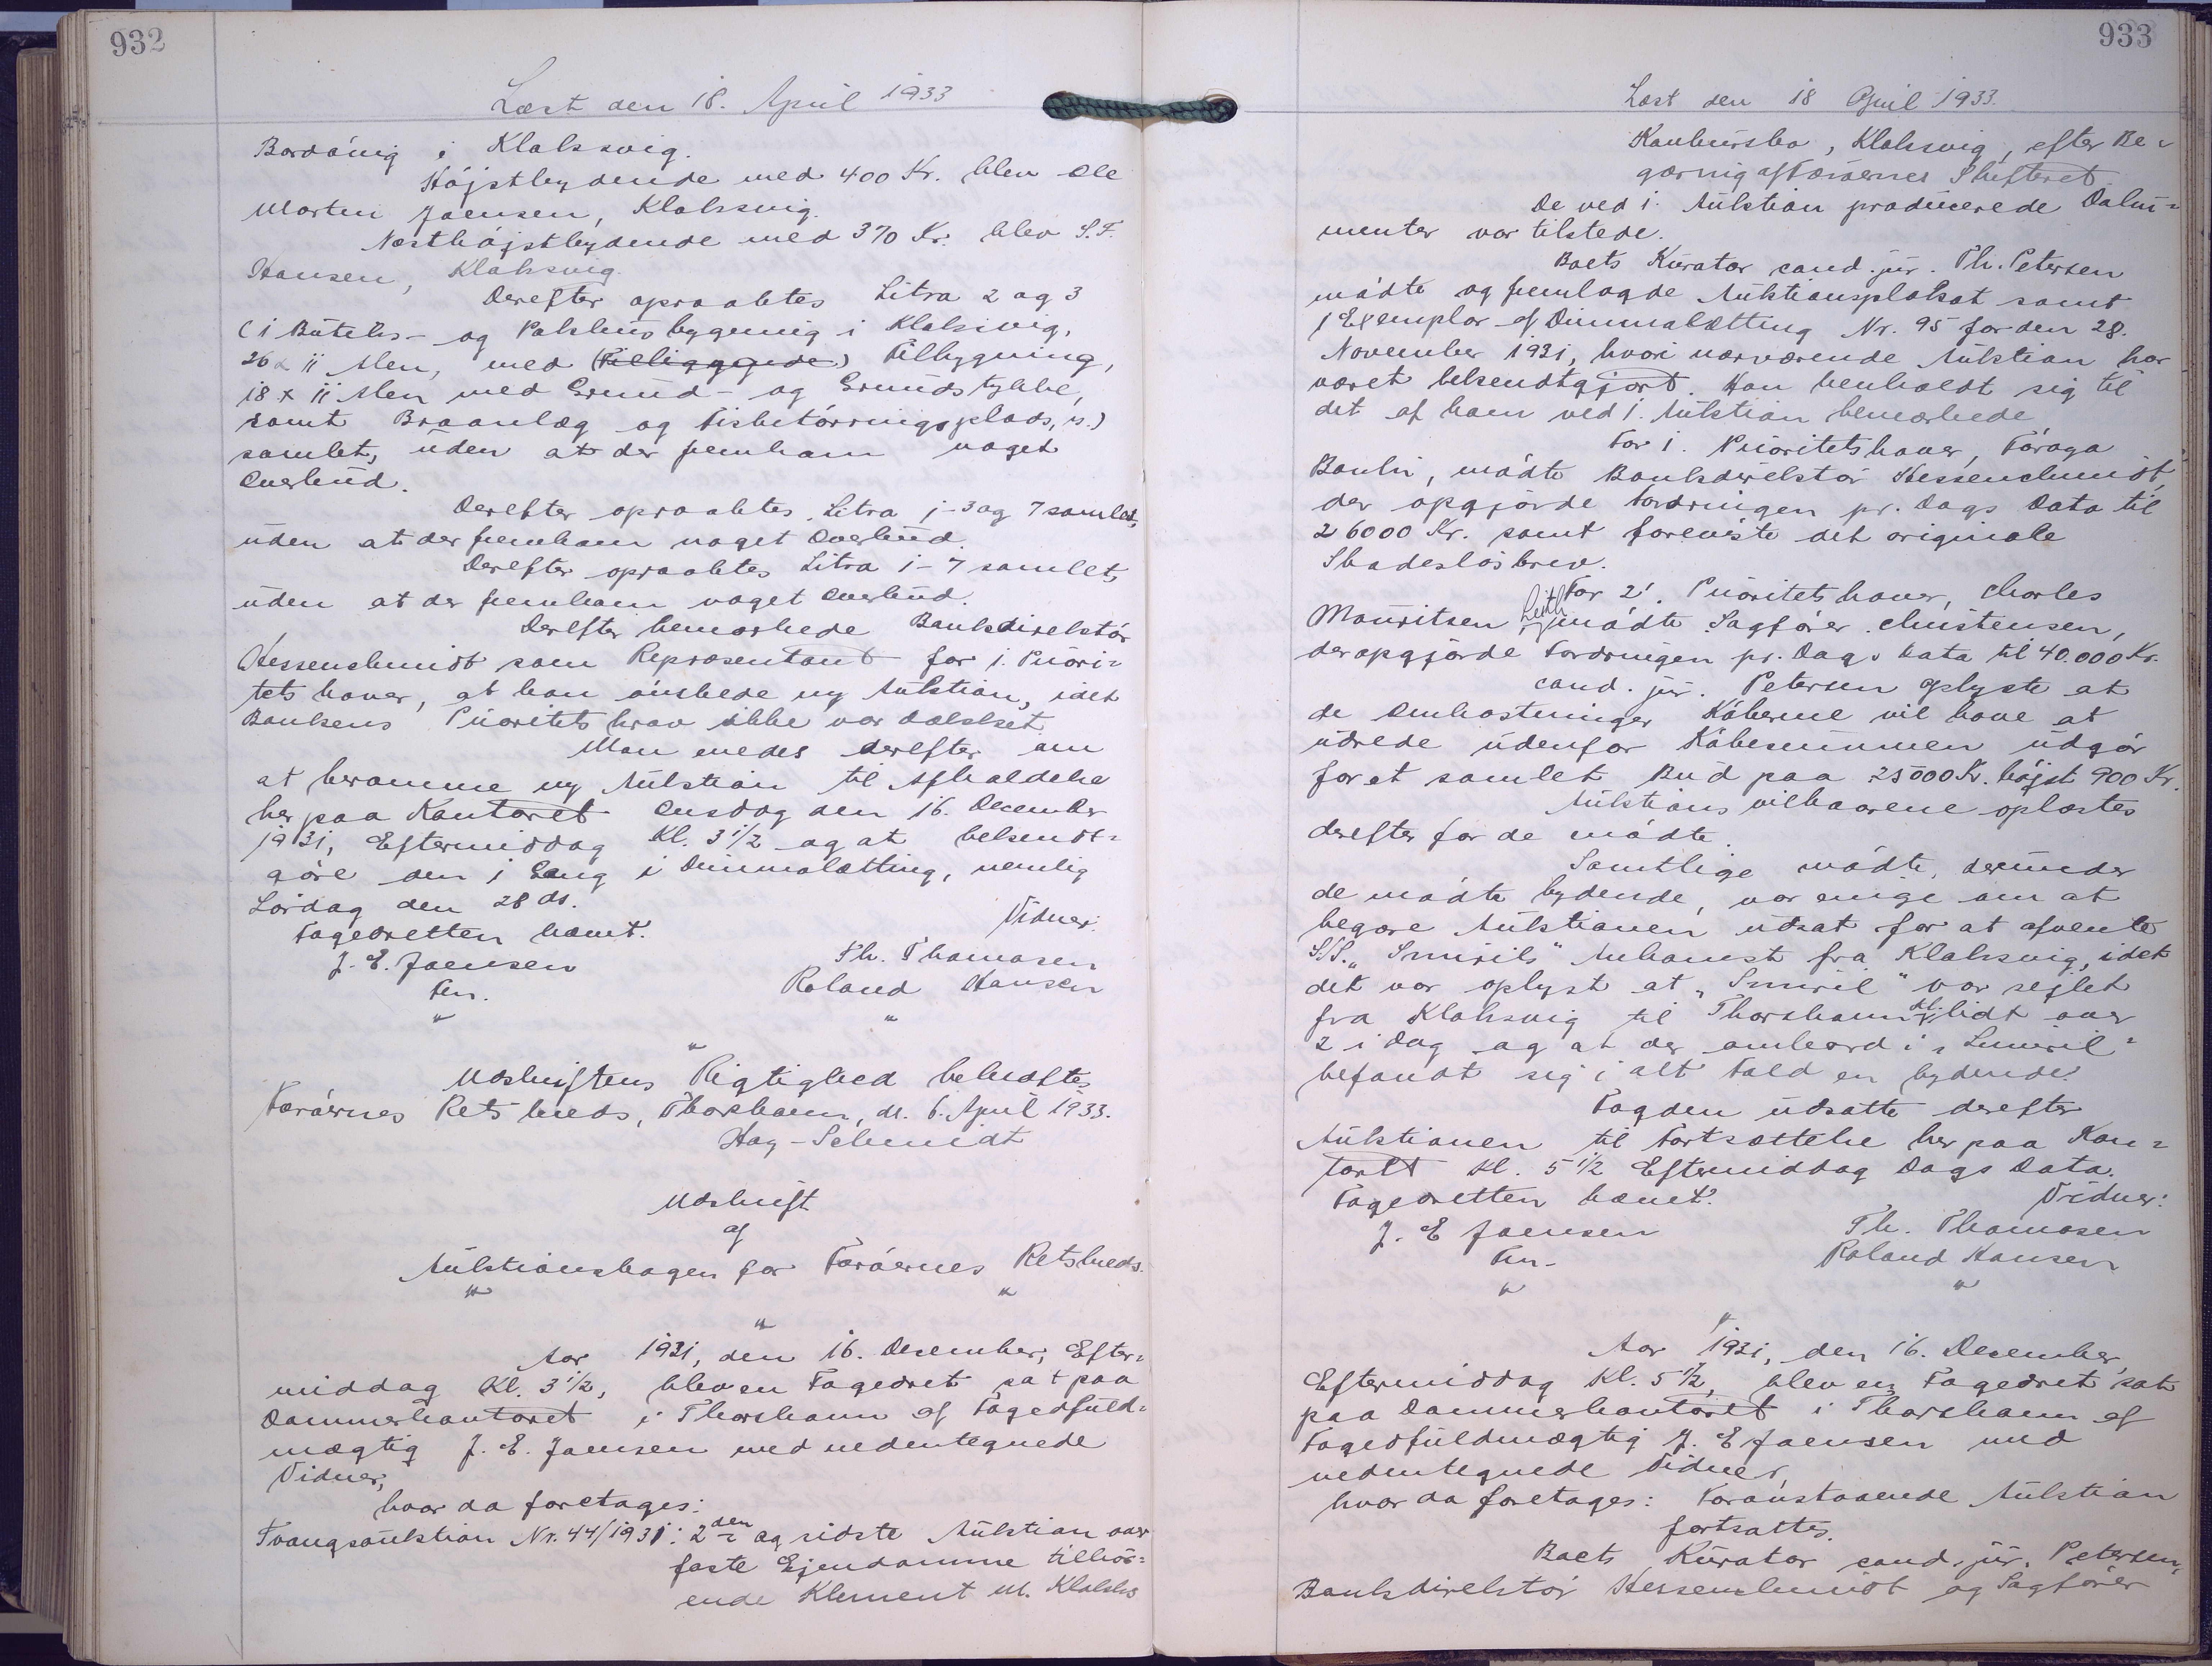 932
Læst den 18. April 1933
Bordövig i Klaksvig.
Höjstbydende med 400 Kr. blev Ole
Morten Joensen, Klaksvig.
Næsthöjstbydende med 370 Kr. blev S.F.
Hansen, Klaksvig.
Derefter opraabtes Litra 2 og 3
(1 Butiks- og Pakhusbygning i Klaksvig,
26 x 11 Alen, med (Tilliggende) Tilbygning,
18 x 11 Alen med Grund- og Grundstykke,
samt Braanlæg og Fisketörringsplads,
samlet, uden at der fremkom noget
Overbud.
Derefter opraabtes Litra 1-3 og 7 samlet,
uden at der fremkom noget Overbud.
Derefter opraabtes Litra 1-7 samlet,
uden at der fremkom noget Overbud.
Derefter bemærkede Bankdirektör
Hessenschmidt som Repræsentant for 1. Priori-
tetshaver, at han önskede ny Auktion, idet
Bankens Prioritetskrav ikke var dækket.
Man enedes derefter om
at beramme ny Auktion til Afholdelse
her paa Kontoret Onsdag den 16. December
1931, Eftermiddag Kl. 3 1/2 og at bekendt-
göre den 1 Gang i Dimmalætting, nemlig
Lördag den 28 ds.
Fogedretten hævet.
Vidner:
J. E. Joensen
Th. Thomasen
Fm.
Roland Hansen
" "
"
Udskriftens Rigtighed bekræftes
Færöernes Retskreds, Thorshavn, d. 6. April 1933.
Hag-Schmidt
Udskrift
af
Auktionsbogen for Færöernes Retskreds.
" "
"
Aar 1931, den 16. December, Efter-
middag Kl. 3 1/2, blev en Fogedret sat paa
Dommerkontoret i Thorshavn af Fogedfuld-
mægtig J. E. Joensen med undertegnede
Vidner,
hvor da foretages:
Tvangsauktion Nr. 44/1931: 2den og sidste Auktion over
faste Ejendomme tilhör-
ende Klement M. Klakks
933
Læst den 18 April 1933.
Konkursbo, Klaksvig, efter Be-
gæring af Færöernes Skifteret.
De ved 1. Auktion producerede Doku-
menter var tilstede.
Boets Kurator cand. jur. Th. Petersen
mödte og fremlagde Auktionsplakat samt
1 Exemplar af Dimmalætting Nr. 95 for den 28.
November 1931, hvori nærværende Auktion har
været bekendtgjort. Han henholdt sig til
det af ham ved 1. Auktion bemærkede
For 1. Prioritetshaver, Föroya
Banki, mödte Bankdirektör Hessenschmidt,
der opgjorde Fordringen pr. Dags Dato til
26000 Kr. samt foreviste det originale
Skadeslösbrev.
For 2'. Prioritetshaver, Charles
Mauritzen Leith mödte Sagförer Christensen,
der opgjorde Fordringen pr. Dags Dato til 40.000 Kr.
cand. jur. Petersen oplyste at
de Omkostninger Köberne vil have at
udrede udenfor Köbesummen udgör
for et samlet Bud paa 25000 Kr. höjst 900 Kr.
Auktionsvilkaarene oplæstes
derefter for de mödte.
Samtlige mödte, derunder
de mödte bydende, var enige om at
begære Auktionen udsat for at afvente
S/S. „Smirils" Ankomst fra Klaksvig, idet
det var oplyst at „Smiril" var sejlet
fra Klaksvig til Thorshavn Kl. lidt over
2 i Dag og at der ombord i „Smiril"
befandt sig i alt Fald en bydende.
Fogden udsatte derefter
Auktionen til Fortsættelse her paa Kon-
toret Kl. 5 1/2 Eftermiddag Dags Dato.
Fogedretten hævet.
Vidner:
J. E Joensen
Th. Thomasen
Fm.
Roland Hansen
" "
"
Aar 1931, den 16. December,
Eftermiddag Kl. 5 1/2, blev en Fogedret sat
paa Dommerkontoret i Thorshavn af
Fogedfuldmægtig J. E Joensen med
undertegnede Vidner,
hvor da foretages: Foranstaaende Auktion
fortsattes.
Boets Kurator cand. jur. Petersen,
Bankdirektör Hessenschmidt og Sagförer